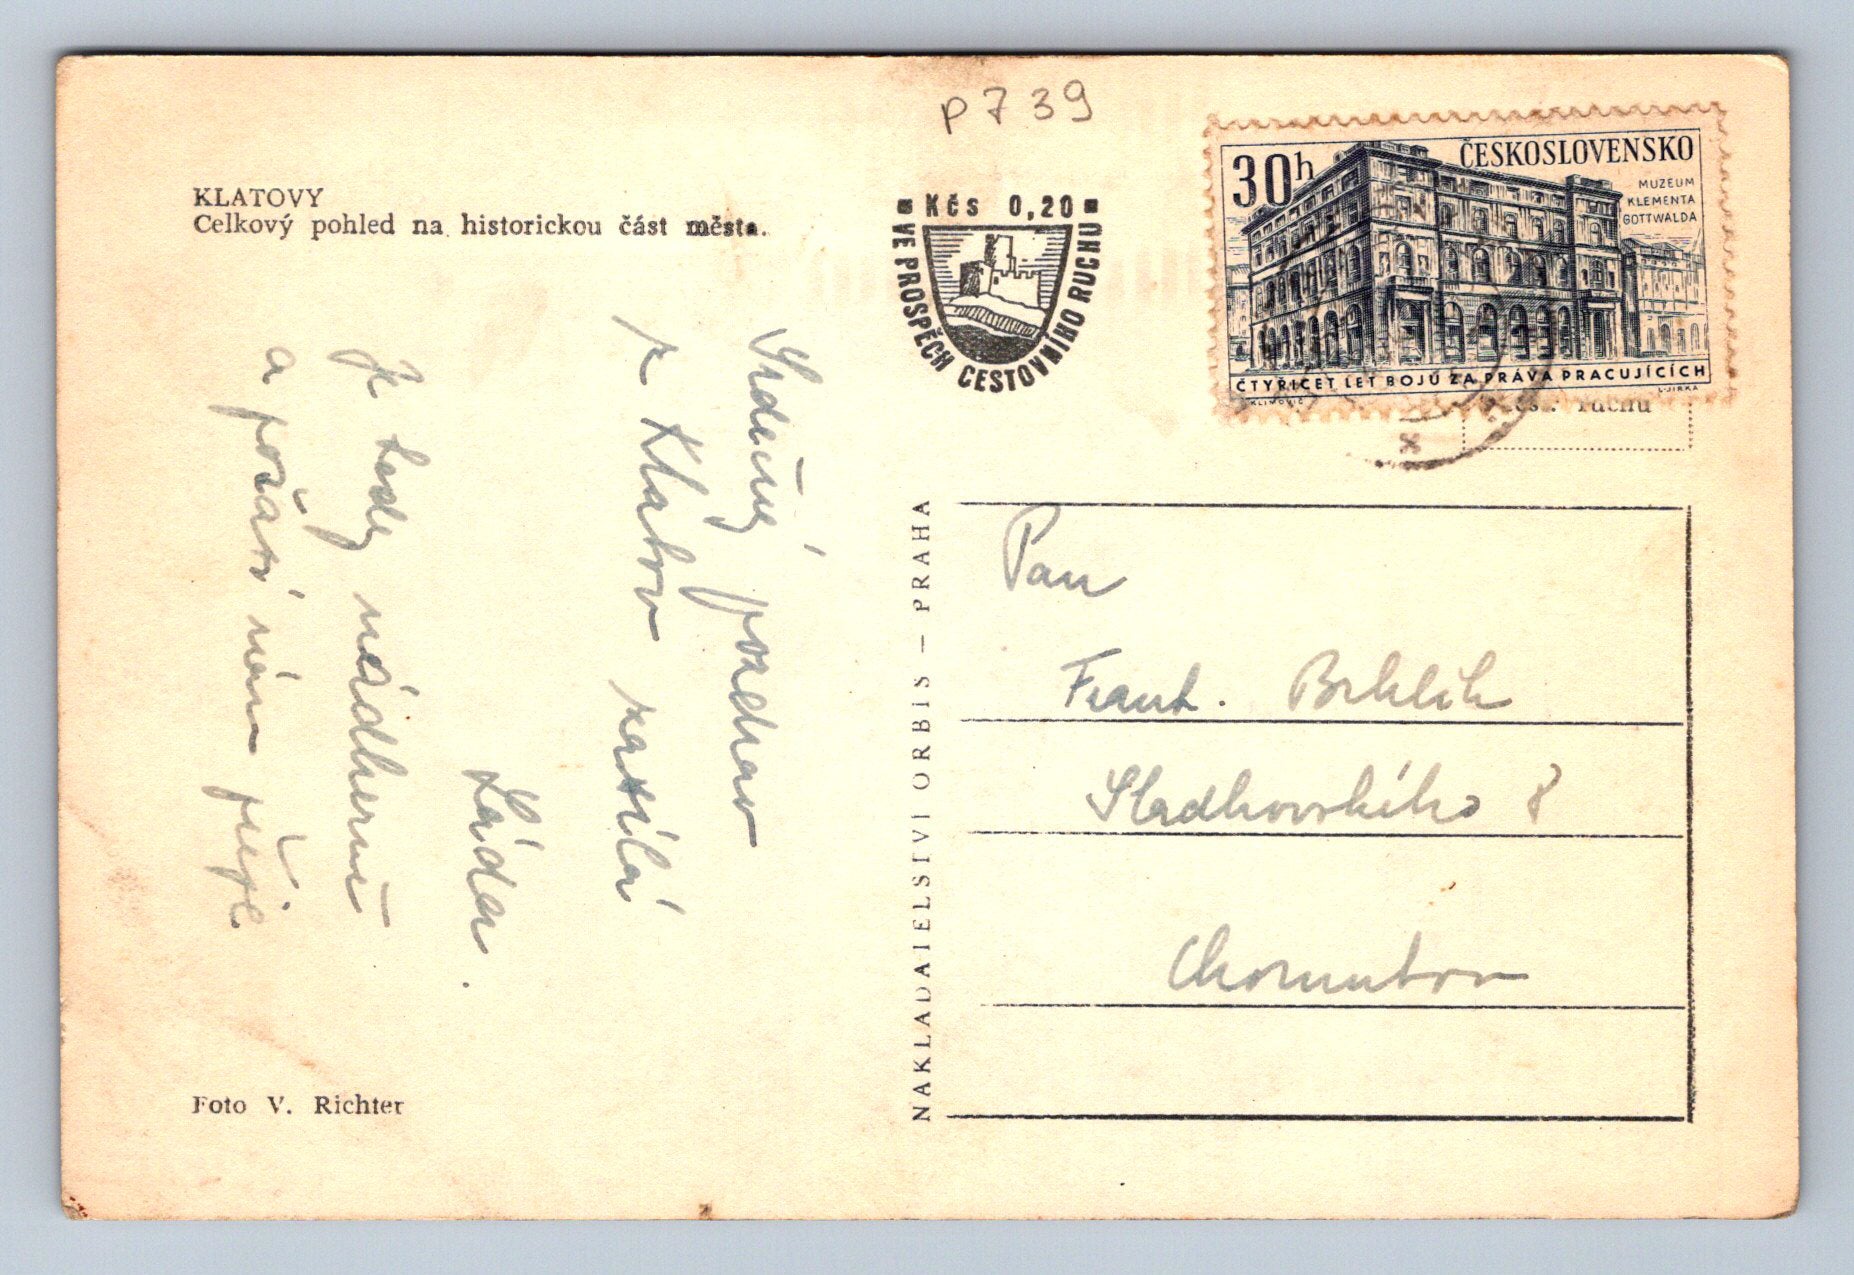 P739
KLATOVY
Celkový pohled na historickou část města.
Kčs 0,20
VE PROSPĚCH CESTOVNÍHO RUCHU
30h
ČESKOSLOVENSKO
MUZEUM
KLEMENTA
GOTTWALDA
ČTYŘICET LET BOJŮ ZA PRÁVA PRACUJÍCÍCH
KLIMOVIČ
L·JIRKA
ruchu
Srdečný pozdrav
z Klatov zasílá
Láďa.
Je tady nádherně
a počasí nám přeje
NAKLADATELSTVÍ ORBIS — PRAHA
Pan
Frant. Brhlík
Sladkovského 8
Chomutov
Foto V. Richter